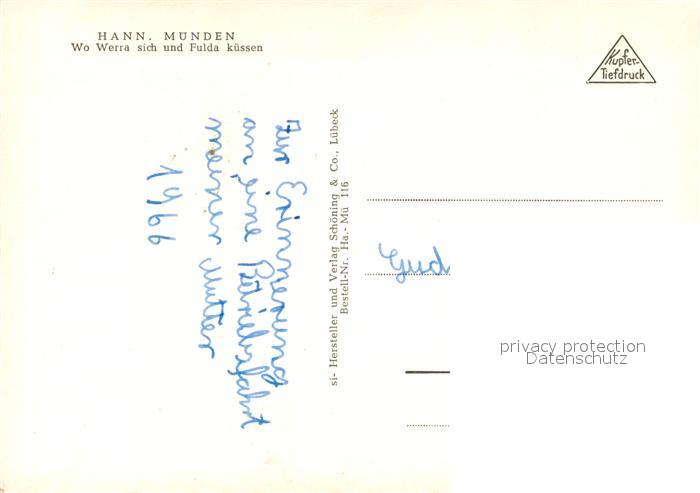 HANN. MÜNDEN
Wo Werra sich und Fulda küssen
Kupfer-
Tiefdruck
Zur Erinnerung
an eine Betriebsfahrt
meiner Mutter
1966
si- Hersteller und Verlag Schöning & Co., Lübeck
Bestell-Nr. Ha.- Mü 116
privacy protection
Datenschutz